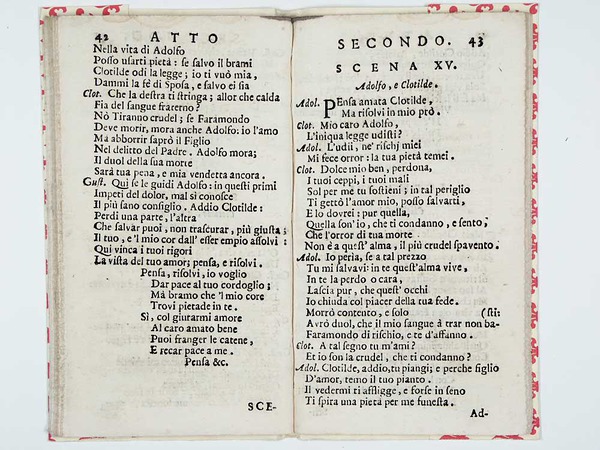 42 ATTO
Nella vita di Adolfo
Posso usarti pietà: se salvo il brami
Clotilde odi la legge; io ti vuò mia,
Dammi la fè di Sposa, e salvo ei sia
Clot. Che la destra ti stringa; allor che calda
Fia del sangue fraterno?
Nò Tiranno crudel; se Faramondo
Deve morir, mora anche Adolfo: io l'amo
Ma abborrir saprò il Figlio
Nel delitto del Padre. Adolfo mora;
Il duol della sua morte
Sarà tua pena, e mia vendetta ancora.
Gust. Qui se le guidi Adolfo: in questi primi
Impeti del dolor, mal si conosce
Il più sano consiglio. Addio Clotilde:
Perdi una parte, l'altra
Che salvar puoi, non trascurar, più giusta;
Il tuo, e 'l mio cor dall' esser empio assolvi:
Qui vinca i tuoi rigori
La vista del tuo amor; pensa, e risolvi.
Pensa, risolvi, io voglio
Dar pace al tuo cordoglio;
Mà bramo che 'l mio core
Trovi pietade in te.
Sì, col giurarmi amore
Al caro amato bene
Puoi franger le catene,
E recar pace a me.
Pensa &c.
SCE-
SECONDO. 43
SCENA XV.
Adolfo, e Clotilde.
Adol. PEnsa amata Clotilde,
Ma risolvi in mio prò.
Clot. Mio caro Adolfo,
L'iniqua legge udisti?
Adol. L'udii, ne' rischj miei
Mi fece orror: la tua pietà temei.
Clot. Dolce mio ben, perdona,
I tuoi ceppi, i tuoi mali
Sol per me tu sostieni; in tal periglio
Ti gettò l'amor mio, posso salvarti,
E lo dovrei: pur quella,
Quella son' io, che ti condanno, e sento;
Che l'orror di tua morte
Non è a quest' alma, il più crudel spavento.
Adol. Io peria, se a tal prezzo
Tu mi salvavi: in te quest' alma vive,
In te la perdo o cara,
Lascia pur, che quest' occhi
Io chiuda col piacer della tua fede.
Morrò contento, e solo (sti:
Avrò duol, che il mio sangue à trar non ba-
Faramondo di rischio, e te d'affanno.
Clot. A tal segno tu m'ami?
Et io son la crudel, che ti condanno?
Adol. Clotilde, addio, tu piangi; e perche figlio
D'amor, temo il tuo pianto.
Il vedermi ti affligge, e forse in seno
Ti spira una pietà per me funesta.
Ad-